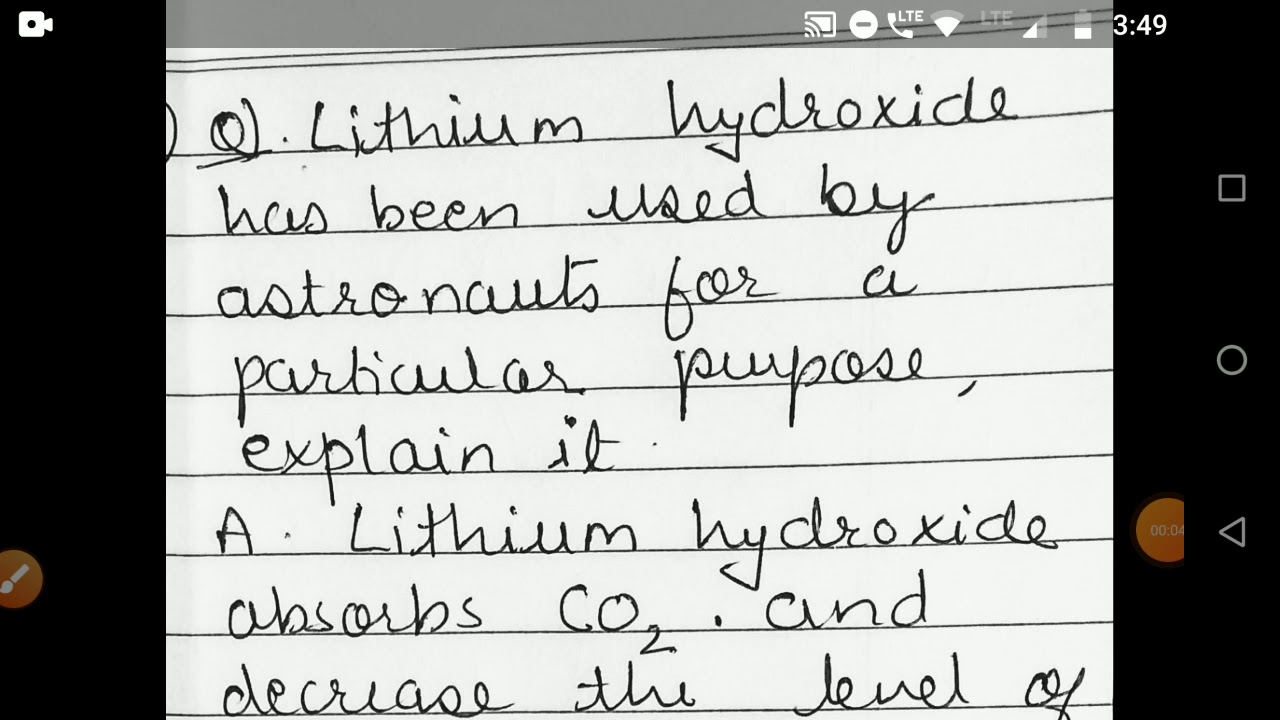 LTE LTE 3:49
Q. Lithium hydroxide
has been used by
astronauts for a
particular purpose,
explain it.
A. Lithium hydroxide
absorbs CO₂. and
decrease the level of
00:04